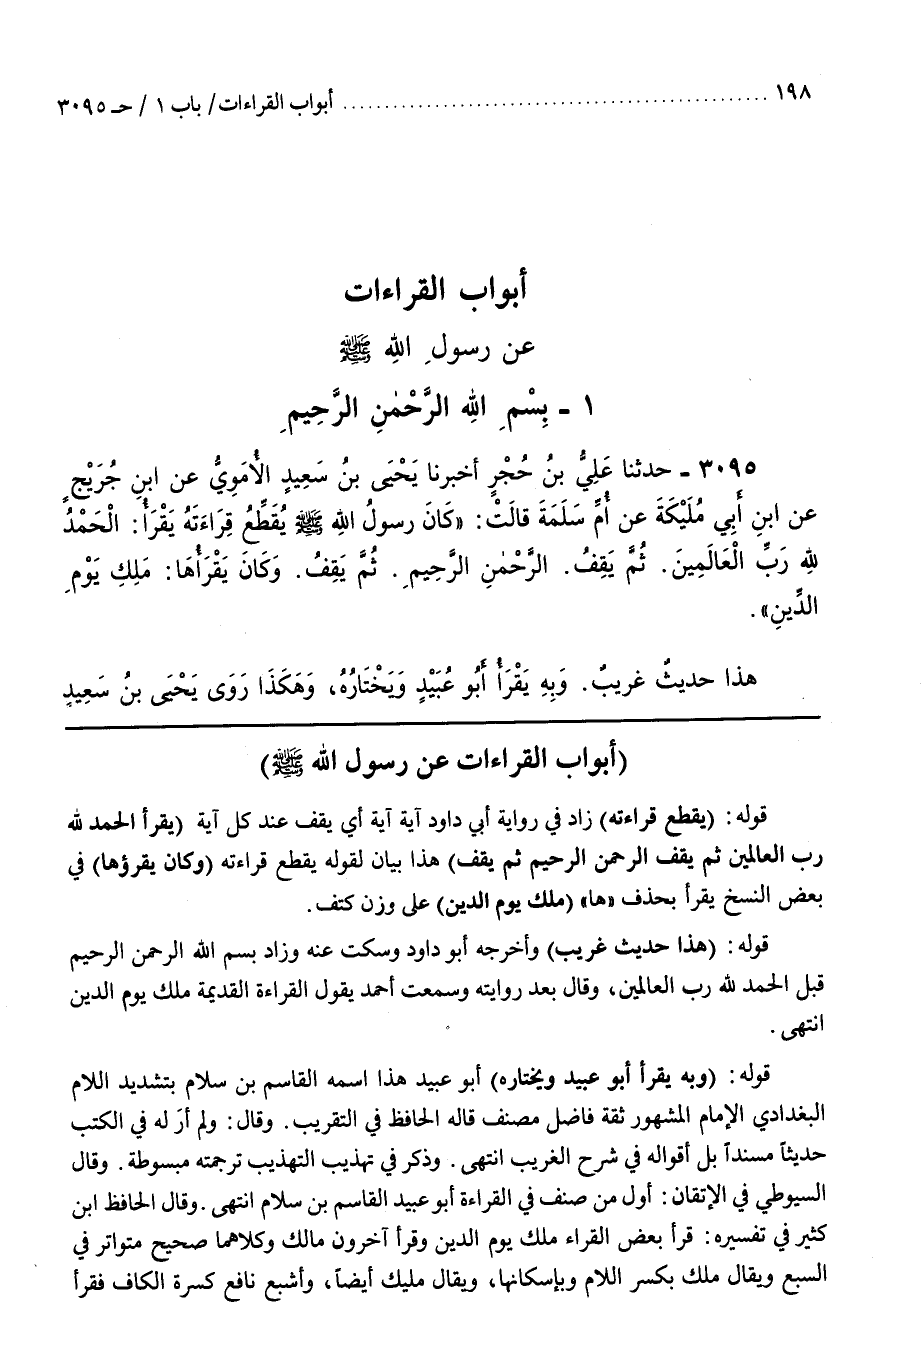 ١٩٨ ........................................ أبواب القراءات/ باب ١ / حـ ٣٠٩٥
أبواب القراءات
عن رسولِ اللهِ ﷺ
١ - بِسْمِ اللهِ الرَّحْمٰنِ الرَّحِيمِ
٣٠٩٥ - حدثنا عَلِيُّ بنُ حُجْرٍ أخبرنا يَحْيَى بنُ سَعِيدٍ الأُمَوِيُّ عن ابنِ جُرَيْجٍ
عن ابنِ أَبِي مُلَيْكَةَ عن أُمِّ سَلَمَةَ قالَتْ: «كَانَ رسولُ اللهِ ﷺ يُقَطِّعُ قِرَاءَتَهُ يَقْرَأُ: الْحَمْدُ
للهِ رَبِّ الْعَالَمِينَ. ثُمَّ يَقِفُ. الرَّحْمٰنِ الرَّحِيمِ. ثُمَّ يَقِفُ. وَكَانَ يَقْرَأُهَا: مَلِكِ يَوْمِ
الدِّينِ».
هذا حديثٌ غريبٌ. وَبِهِ يَقْرَأُ أَبُو عُبَيْدٍ وَيَخْتَارُهُ، وَهَكَذَا رَوَى يَحْيَى بنُ سَعِيدٍ
(أبواب القراءات عن رسول الله ﷺ)
قوله: (يقطع قراءته) زاد في رواية أبي داود آية آية أي يقف عند كل آية (يقرأ الحمد لله
رب العالمين ثم يقف الرحمن الرحيم ثم يقف) هذا بيان لقوله يقطع قراءته (وكان يقرؤها) في
بعض النسخ يقرأ بحذف «ها» (ملك يوم الدين) على وزن كتف.
قوله: (هذا حديث غريب) وأخرجه أبو داود وسكت عنه وزاد بسم الله الرحمن الرحيم
قبل الحمد لله رب العالمين، وقال بعد روايته وسمعت أحمد يقول القراءة القديمة ملك يوم الدين
انتهى.
قوله: (وبه يقرأ أبو عبيد ويختاره) أبو عبيد هذا اسمه القاسم بن سلام بتشديد اللام
البغدادي الإمام المشهور ثقة فاضل مصنف قاله الحافظ في التقريب. وقال: ولم أرَ له في الكتب
حديثاً مسنداً بل أقواله في شرح الغريب انتهى. وذكر في تهذيب التهذيب ترجمته مبسوطة. وقال
السيوطي في الإتقان: أول من صنف في القراءة أبو عبيد القاسم بن سلام انتهى. وقال الحافظ ابن
كثير في تفسيره: قرأ بعض القراء ملك يوم الدين وقرأ آخرون مالك وكلاهما صحيح متواتر في
السبع ويقال ملك بكسر اللام وبإسكانها، ويقال مليك أيضاً، وأشبع نافع كسرة الكاف فقرأ